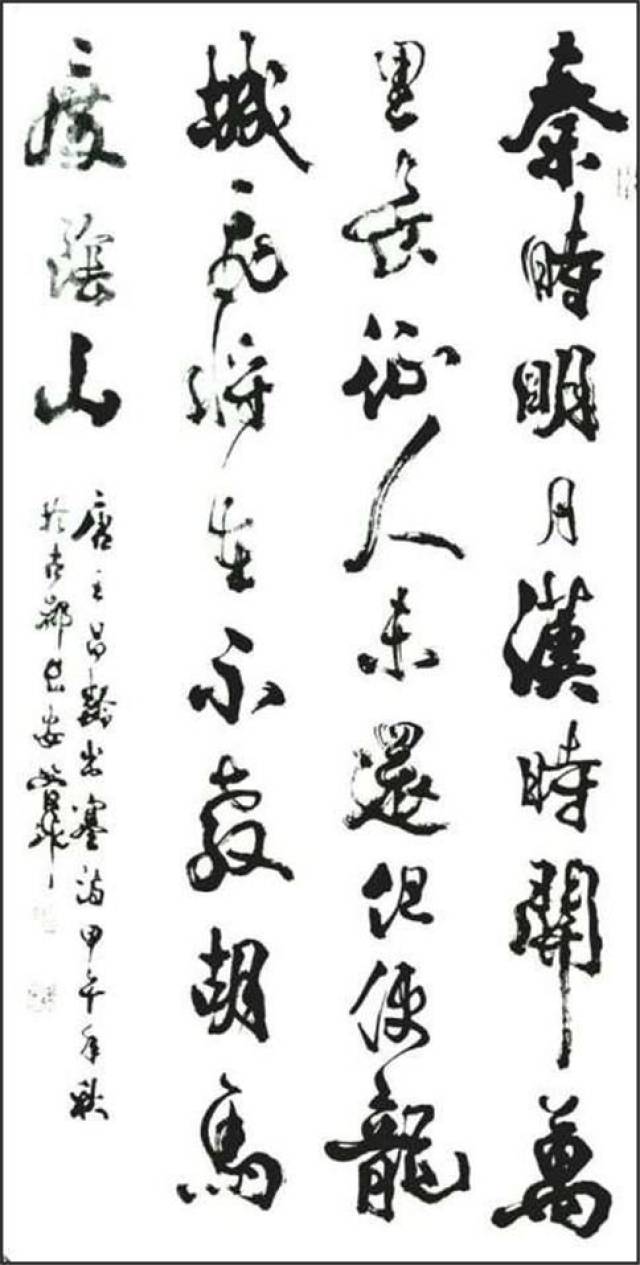 秦時明月漢時關萬
里長征人未還但使龍
城飛將在不教胡馬
度陰山
唐王昌齡出塞詩甲午年秋
於古都長安